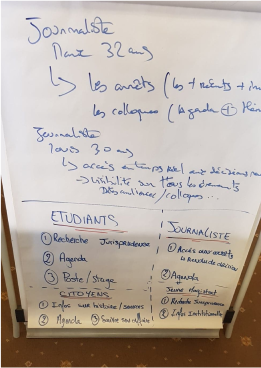 Journaliste
32 ans
↳ les arrêts (les + récents +
les colloques (Agenda +
Journaliste
Louis 30 ans
↳ accès en temps réel aux décisions
→ Visibilité sur tous les événements
/colloques...
ETUDIANTS
① Recherche Jurisprudence
② Agenda
③ Poste/stage
CITOYENS
① Infos sur histoire/
② Agenda ③ Suivre son affaire
JOURNALISTE
① Accès aux arrêts
② Agenda
Jeune Magistrat
① Recherche Jurisprudence
② Info Institutionnelle